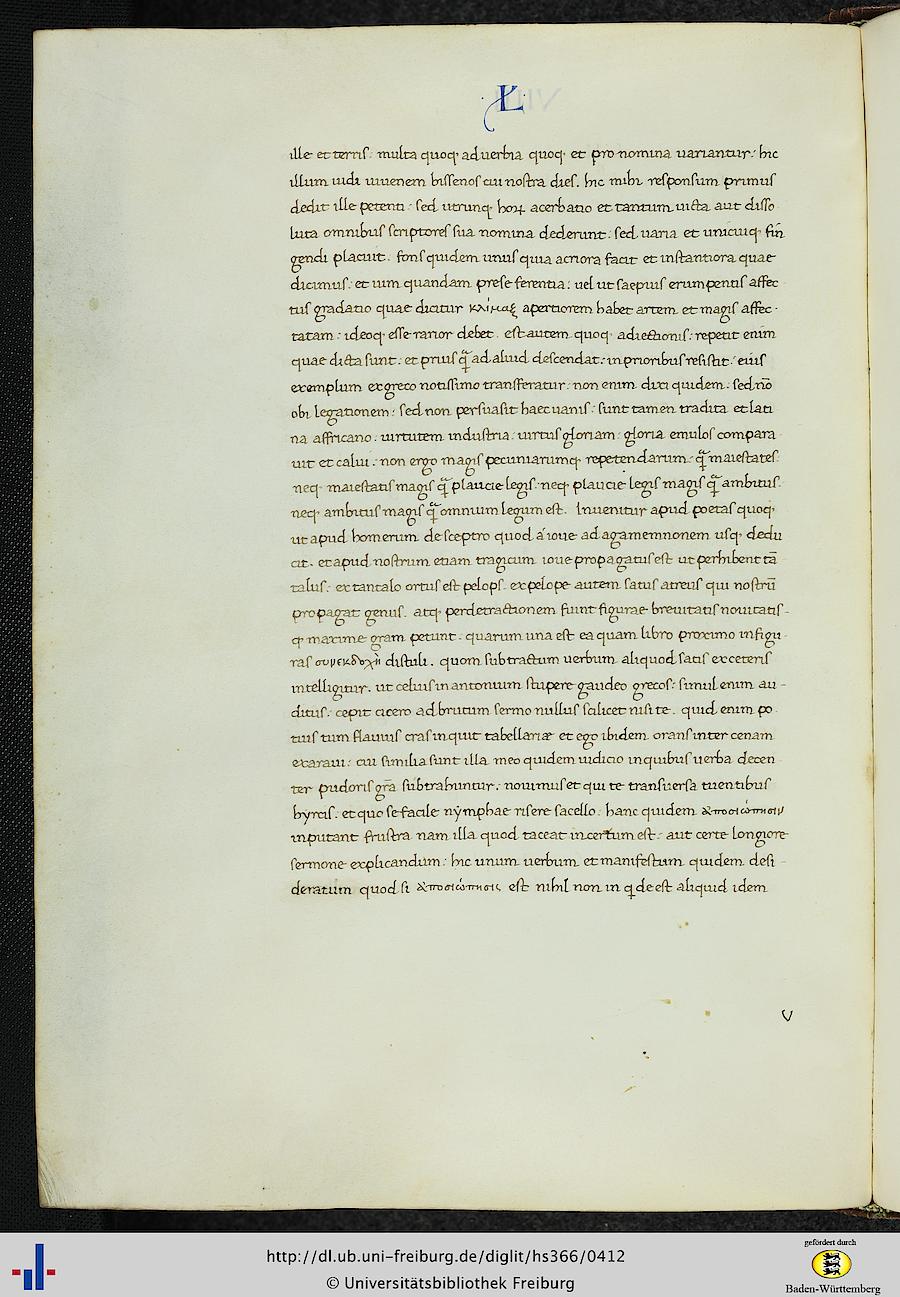 L
ille et terris: multa quoq; aduerbia quoq; et pro nomina uariantur: hic
illum uidi iuuenem bissenos cui nostra dies. hic mihi responsum primus
dedit ille petenti: sed utrunq; hoꝝ acerbatio et tantum iuncta aut disso
luta omnibus scriptores sua nomina dederunt: sed uaria et unicuiq; fin
gendi placuit. fons quidem unus quia acriora facit et instantiora quae
dicimus: et uim quandam prese ferentia: uel ut saepius erumpentis affec
tus gradatio quae dicitur κλίμαξ apertiorem habet artem et magis affec-
tatam: ideoq; esse rarior debet. est autem quoq; adiectionis: repetit enim
quae dicta sunt: et prius q̃ ad aliud descendat: in prioribus resistit: eius
exemplum ex greco notissimo transferatur: non enim dixi quidem: sed nō
obi legationem: sed non persuasit haec uanis: sunt tamen tradita et lati
na affricano: uirtutem industria: uirtus gloriam: gloria emulos compara
uit et calui: non ergo magis pecuniarumq; repetendarum: q̃ maiestates.
neq; maiestatis magis q̃ plaucie legis: neq; plaucie legis magis q̃ ambitus.
neq; ambitus magis q̃ omnium legum est. Inuenitur apud poetas quoq;
ut apud homerum de sceptro quod á ioue ad agamemnonem usq; dedu
cit. et apud nostrum etiam tragicum ioue propagatus est ut perhibent tā
talus: ex tantalo ortus est pelops. ex pelope autem satus atreus qui nostrū
propagat genus. atq; per detractionem fiunt figurae breuitatis nouitatis-
q; maxime gram petunt: quarum una est ea quam libro proximo in figu-
ras συνεκδοχὴ distuli. quom subtractum uerbum aliquod satis ex ceteris
intelligitur. ut celius in antonium stupere gaudeo grecos: simul enim au-
ditus: cepit cicero ad brutum sermo nullus scilicet nisi te. quid enim po
tius tum flauius cras inquit tabellariæ et ego ibidem orans inter cenam
exaraui: cui similia sunt illa meo quidem iudicio in quibus uerba decen
ter pudoris gr̃a subtrahuntur: nouimus et qui te transuersa tuentibus
hyrcis: et quo se facile nymphae risere sacello: hanc quidem ἀποσιώπησιν
inputant frustra nam illa quod taceat incertum est: aut certe longiore
sermone explicandum: hic unum uerbum et manifestum quidem desi-
deratum quod si ἀποσιώπησις est nihil non in q̨ deest aliquid idem
V
http://dl.ub.uni-freiburg.de/diglit/hs366/0412
© Universitätsbibliothek Freiburg
gefördert durch
Baden-Württemberg